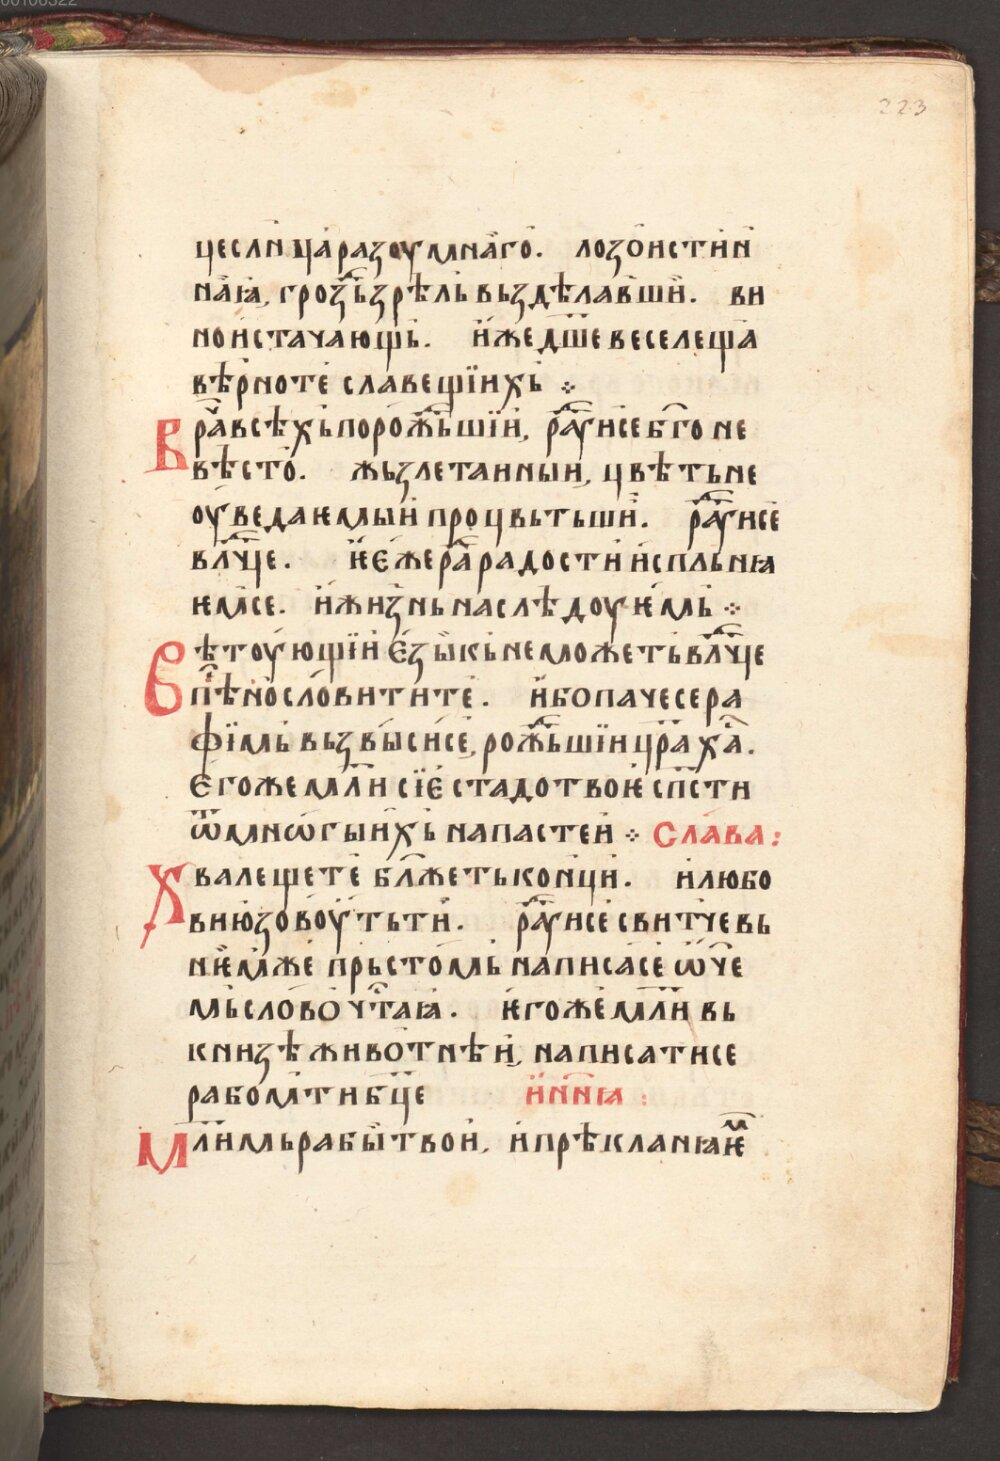 00108322
223
цесли цара разоумнаго. лозо истин
наꙗ, грозⸯдь зрѣль вьздѣлавши. ви
но истачающь. иже дш҃е веселеща
вѣрно те славещїихь ⁘
Врⷣа всѣхь порожⷣьшїи, раⷣуисе бг҃о не
вѣсто. жьзле таинныи, цвѣть не
оувѣдаѥмыи процвьтьши. раⷣуисе
влⷣчце. ѥѥже раⷣ радости испльнꙗ
ѥмсе. и жизнь наслѣдоуѥмь ⁘
Вѣтоующїи езыкь не можеть влⷣчце
пѣⷭнословити те. ибо паче сера
фїмь вьзвысисе, рожⷣьшїи црⷭа хⷭа.
Егоже мл҃и сїе стадо твоѥ сп҃сти
ѿ мнѡгыихь напастеи ⁘ Слава:
Хвалеще те бл҃жеть концⷤи. и любо
вию зовоуть ти. раⷣуисе свитче вь
нѥмже прьстомь написасе ѿче
мь слово чⷭтаꙗ. ѥгоже мл҃и вь
книзѣ животнѣи, написатисе
рабом ти бц҃е и нн҃ꙗ :
Мл҃им ь рабы твои, и прѣкланꙗѥⷨ